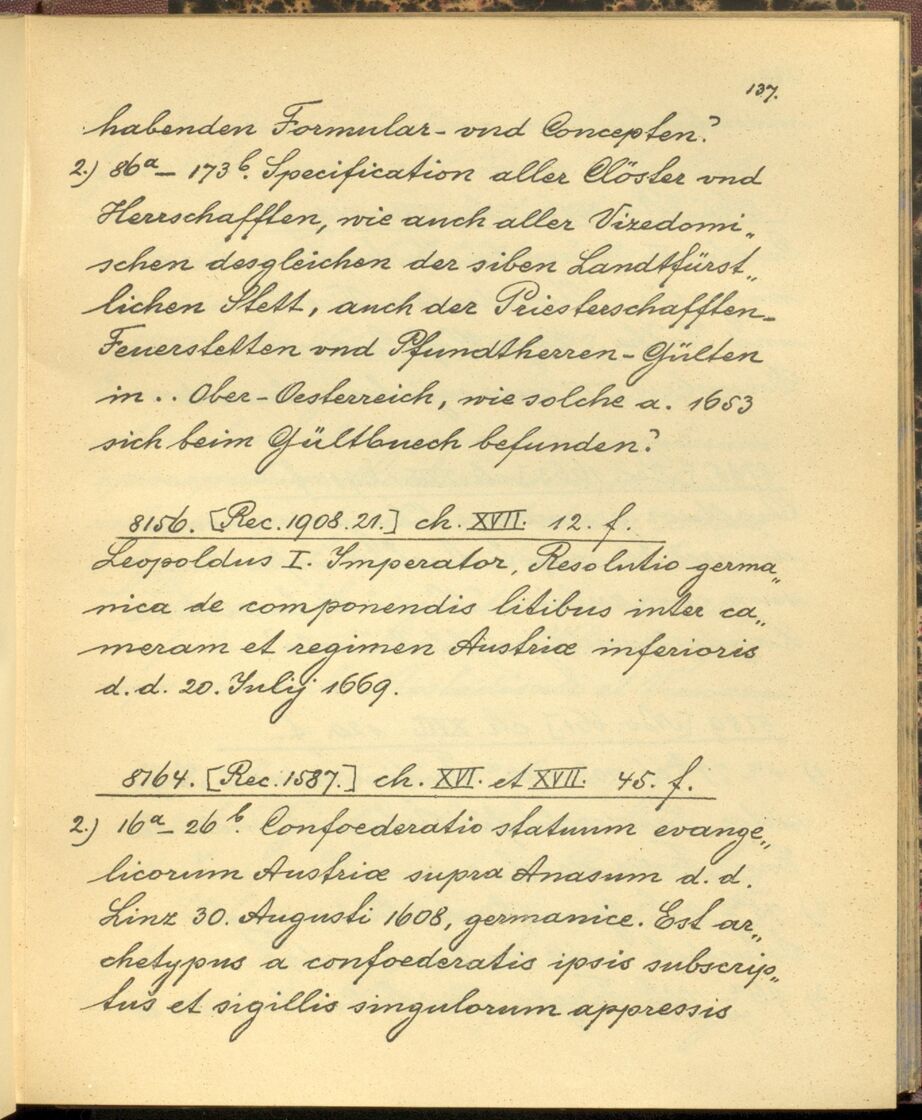 137.
habenden Formular- vnd Concepten?
2.) 86a_ 173b. Specification aller Clöster vnd
Herrschafften, wie auch aller Vizedomi„
schen desgleichen der siben Landtfürst„
lichen Stett, auch der Priesterschafften-
Feuerstetten vnd Pfundtherren-Gülten
in .. Ober-Oesterreich, wie solche a. 1653
sich beim Gültbuech befunden?
8156. [Rec. 1908. 21.] ch. XVII. 12. f.
Leopoldus I. Imperator, Resolutio germa„
nica de componendis litibus inter ca„
meram et regimen Austriæ inferioris
d. d. 20. Julij 1669.
8164. [Rec. 1587.] ch. XVI. et XVII. 45. f.
2.) 16a_ 26b. Confoederatio statuum evange„
licorum Austriæ supra Anasum d. d.
Linz 30. Augusti 1608, germanice. Est ar„
chetypus a confoederatis ipsis subscrip„
tus et sigillis singulorum appressis